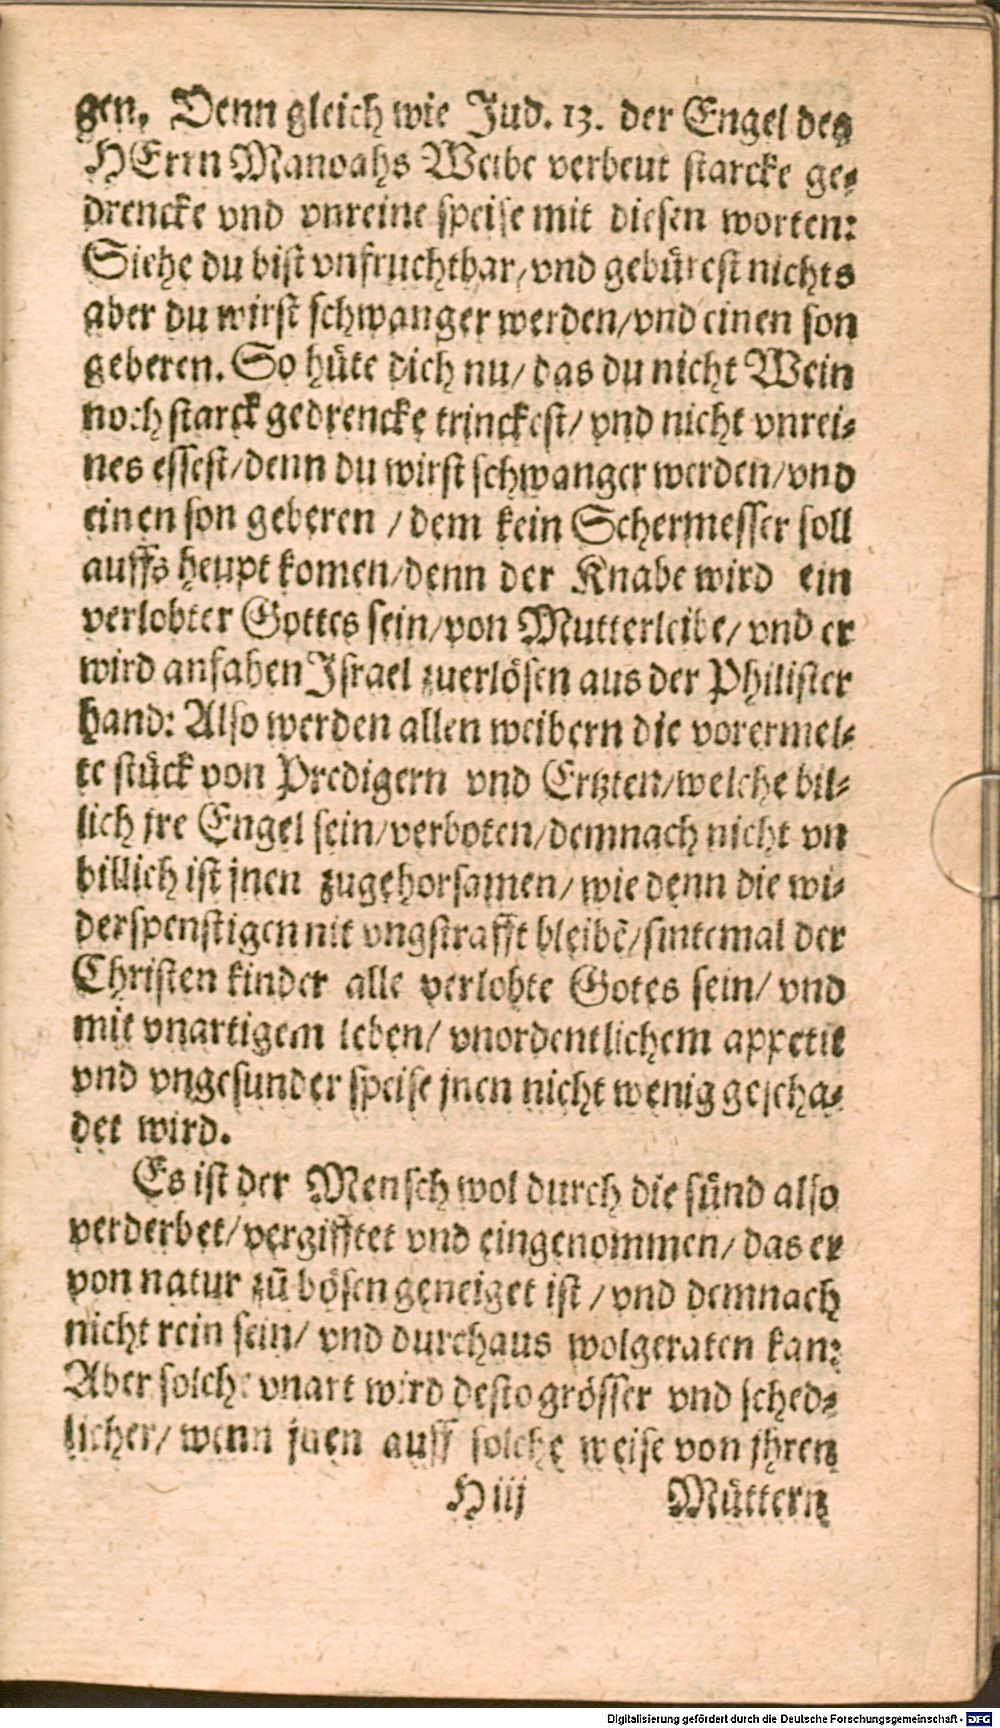 gen. Denn gleich wie Jud. 13. der Engel des
HErrn Manoahs Weibe verbeut starcke ge-
drencke vnd vnreine speise mit diesen worten:
Siehe du bist vnfruchtbar/vnd gebürest nichts
aber du wirst schwanger werden/vnd einen son
geberen. So hüte dich nu/ das du nicht Wein
noch starck gedrencke trinckest/ vnd nicht vnrei-
nes essest/denn du wirst schwanger werden/vnd
einen son geberen /dem kein Schermesser soll
auffs heupt komen/denn der Knabe wird ein
verlobter Gottes sein/von Mutterleibe/ vnd er
wird anfahen Israel zuerlösen aus der Philister
hand: Also werden allen weibern die vorermel-
te stück von Predigern vnd Ertzten/welche bil-
lich jre Engel sein/verboten/demnach nicht vn
billich ist jnen zugehorsamen/ wie denn die wi-
derspenstigen nit vngstrafft bleibẽ/sintemal der
Christen kinder alle verlobte Gotes sein/ vnd
mit vnartigem leben/ vnordentlichem appetit
vnd vngesunder speise jnen nicht wenig gescha-
det wird.
Es ist der Mensch wol durch die sünd also
verderbet/vergifftet vnd eingenommen/ das er
von natur zũ bösen geneiget ist /vnd demnach
nicht rein sein/ vnd durchaus wolgeraten kan:
Aber solche vnart wird desto grösser vnd sched-
licher/ wenn jnen auff solche weise von jhren
H iij Müttern
Digitalisierung gefördert durch die Deutsche Forschungsgemeinschaft - DFG